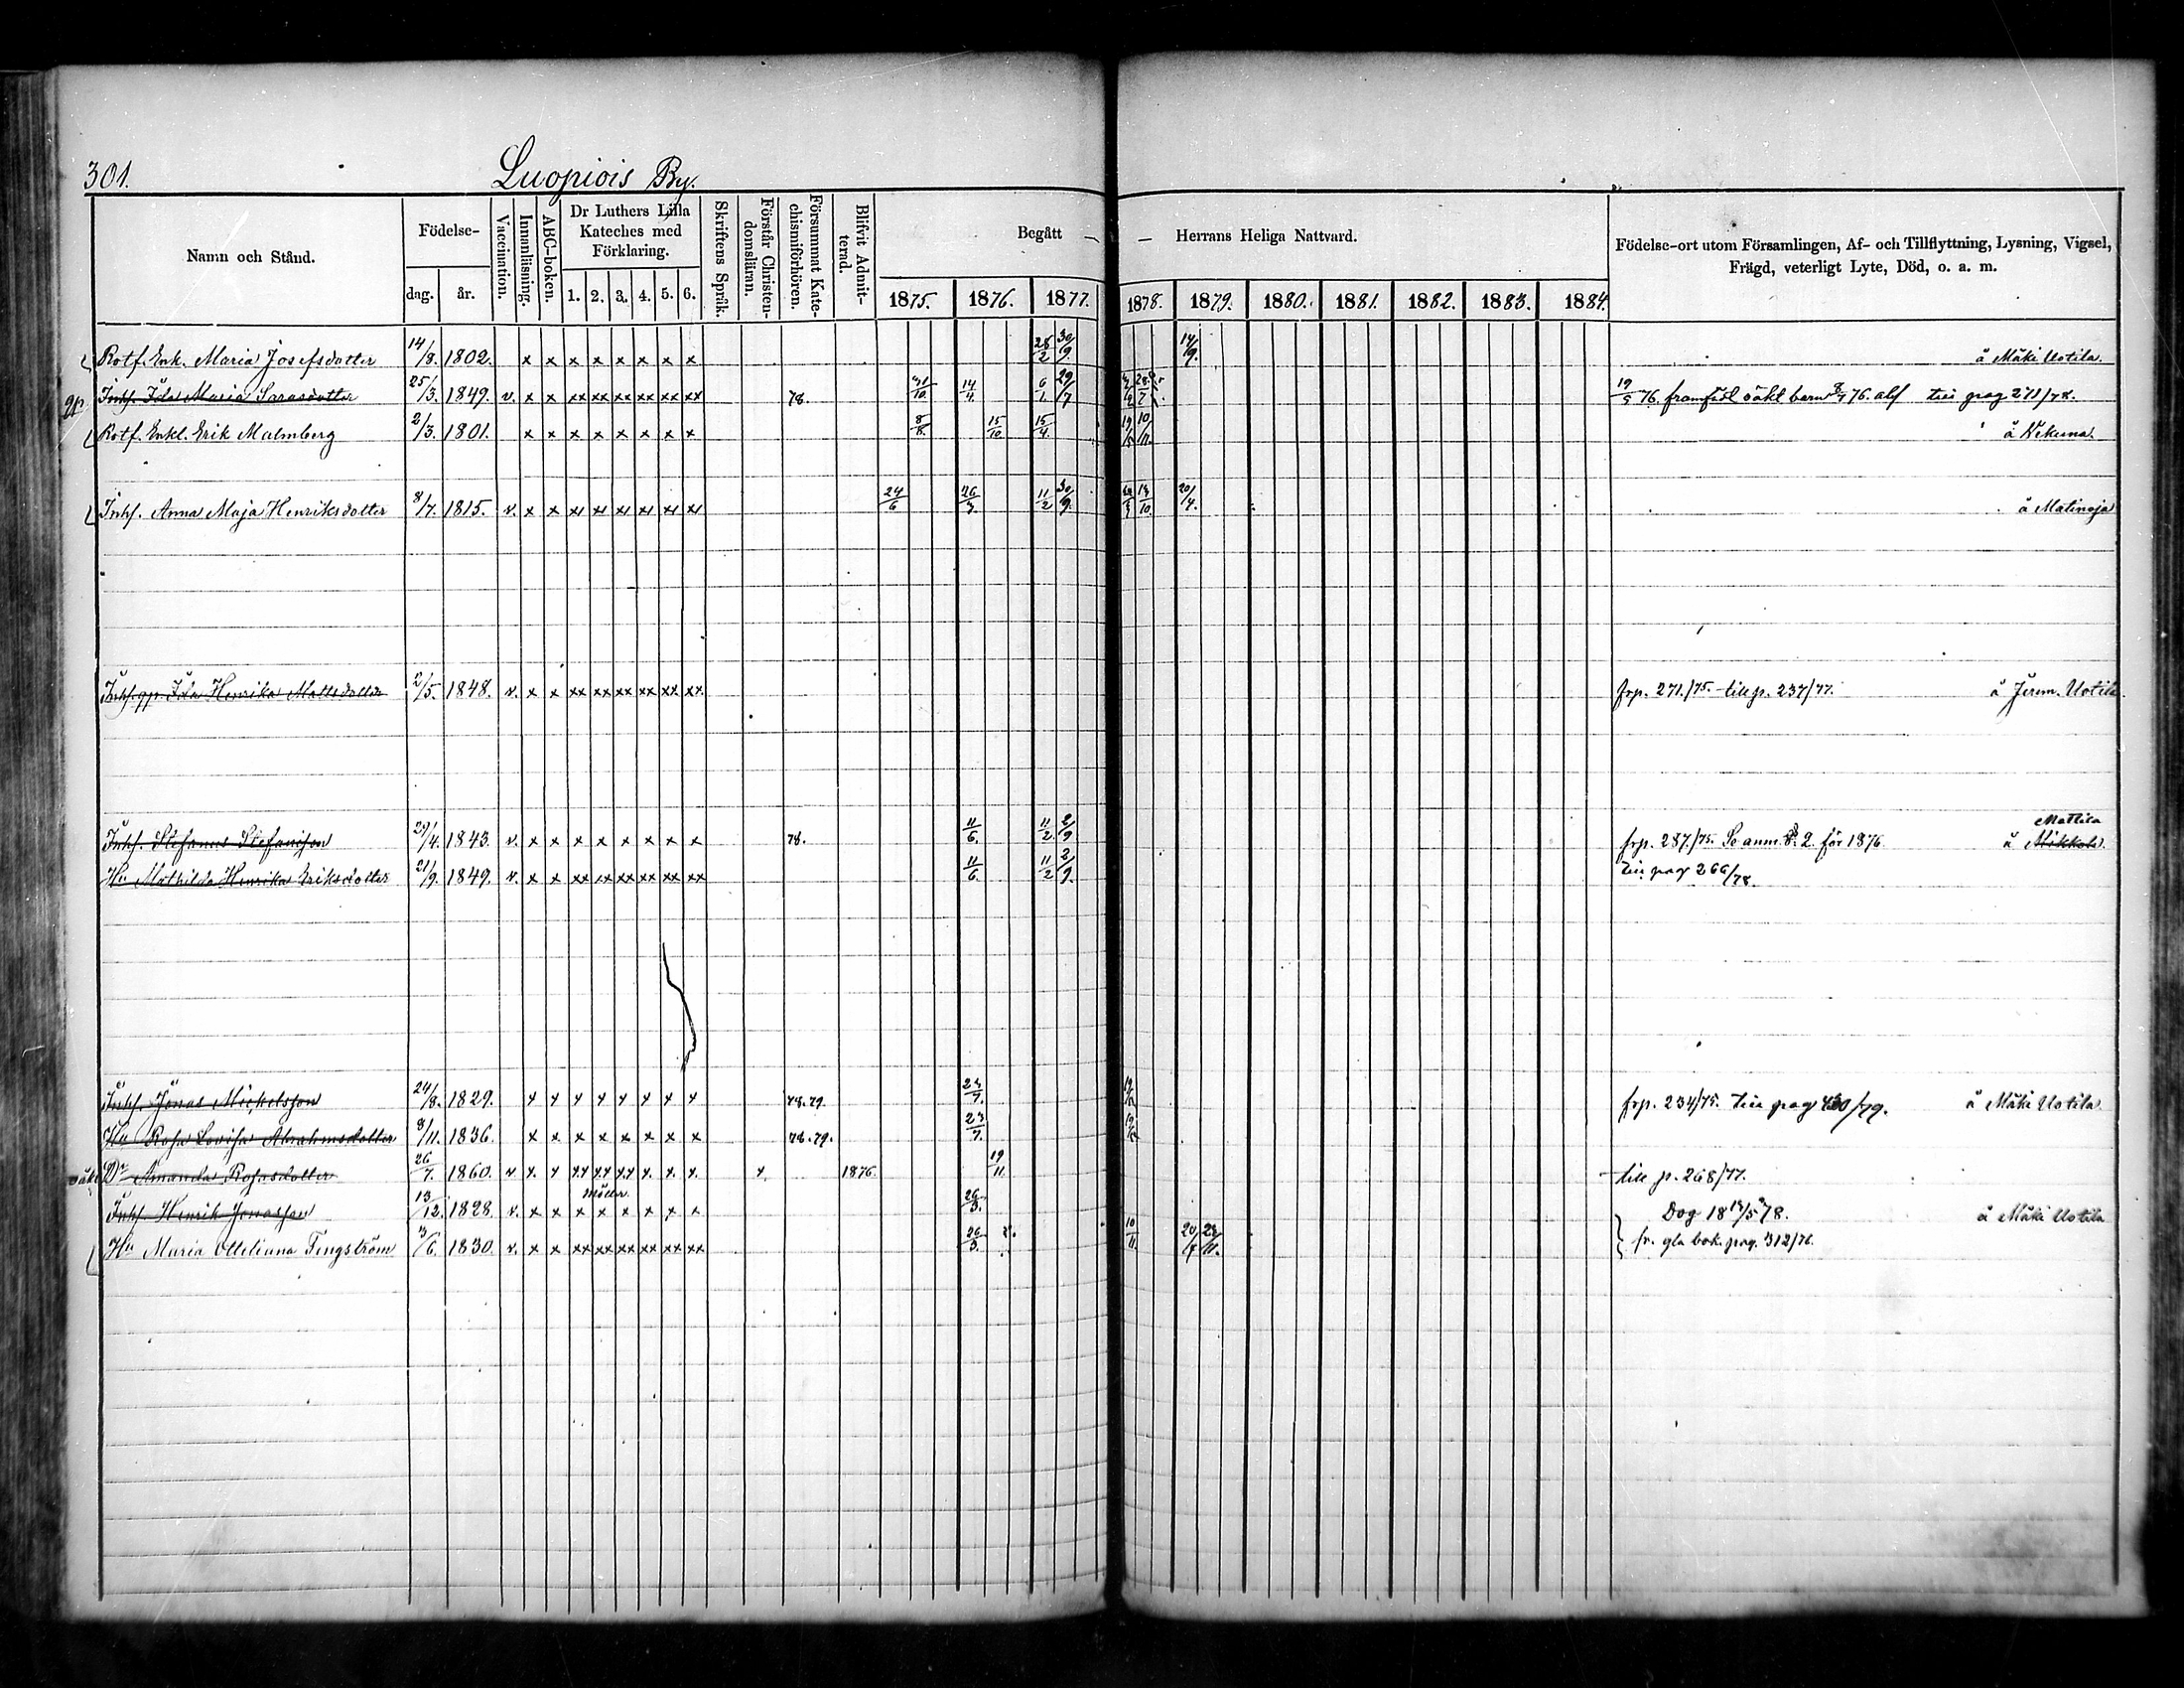 301.
Luopiois By.
Namn och Stånd.
Födelse-
dag.
år.
Vaccination.
Innanläsning.
ABC-boken.
Dr Luthers Lilla
Kateches med
Förklaring.
1. 2. 3. 4. 5. 6.
Skriftens Språk.
Förstår Christen-
domsläran.
Försummat Kate-
chismiförhören.
Blifvit Admit-
terad.
Begått — — Herrans Heliga Nattvard.
1875. 1876. 1877. 1878. 1879. 1880. 1881. 1882. 1883. 1884.
Födelse-ort utom Församlingen, Af- och Tillflyttning, Lysning, Vigsel,
Frägd, veterligt Lyte, Död, o. a. m.
Rotf. Enk. Maria Josefsdotter 14/8. 1802. x x x x x x x x 28/2 30/9. 14/9. å Mäki Uotila.
gp. Inhs. Ida Maria Sarasdotter 25/3. 1849. v. x x xx xx xx xx xx xx 78. 31/10. 14/4. 6/1. 29/7 19/5 76. framföd oäkt barn 8/4 76. abs till pag 271/78.
Rotf. Enkl. Erik Malmberg 2/3. 1801. x x x x x x x x 8/8. 15/10. 15/4. 10/11. å Wekuna.
Inhs. Anna Maja Henriksdotter 8/7. 1815. v. x x 24/6 26/3. 11/2 30/9. 13/10. 20/4. å Matinoja
Inhs. gp. Ida Henrika Mattsdotter 2/5. 1848. v. x x xx xx xx xx xx xx frp. 271./75. till p. 237/77. å Jerem. Uotila
Mattila
Inhs. Stefanus Stefansson 29/4. 1843. v. x x x x x x x x 78. 11/6. 11/2. 2/9 frp. 287./75. Se anm. 2. för 1876 å Mikkola
Hu Mathilda Henrika Eriksdotter 21/9. 1849. v. x x xx xx xx xx xx xx 11/6. 11/2 2/9. till pag 266/78.
Inhs. Jonas Mickelsson 24/8. 1829. x x x x x x x x 78.79. 23/7. frp. 234/75. till pag /79. å Mäki Uotila.
Hu Rosa Lovisa Abrahmsdotter 8/11. 1836. x x x x x x x x 78.79. 23/7.
oäkt Dr Amanda Rosasdotter 26/7. 1860. v. x x xx xx xx x. x. x. x. 1876. 19/11. till p. 268/77.
Inhs. Henrik Jonasson 13/12. 1828. v. x x x x x x x x 26/3. Dog 18 /5 78. å Mäki Uotila
Hu Maria Meliana Tengström 3/6. 1830. v. x x xx xx xx xx xx xx 26/3. 10/11. fr. gla bok. pag. 312/76.